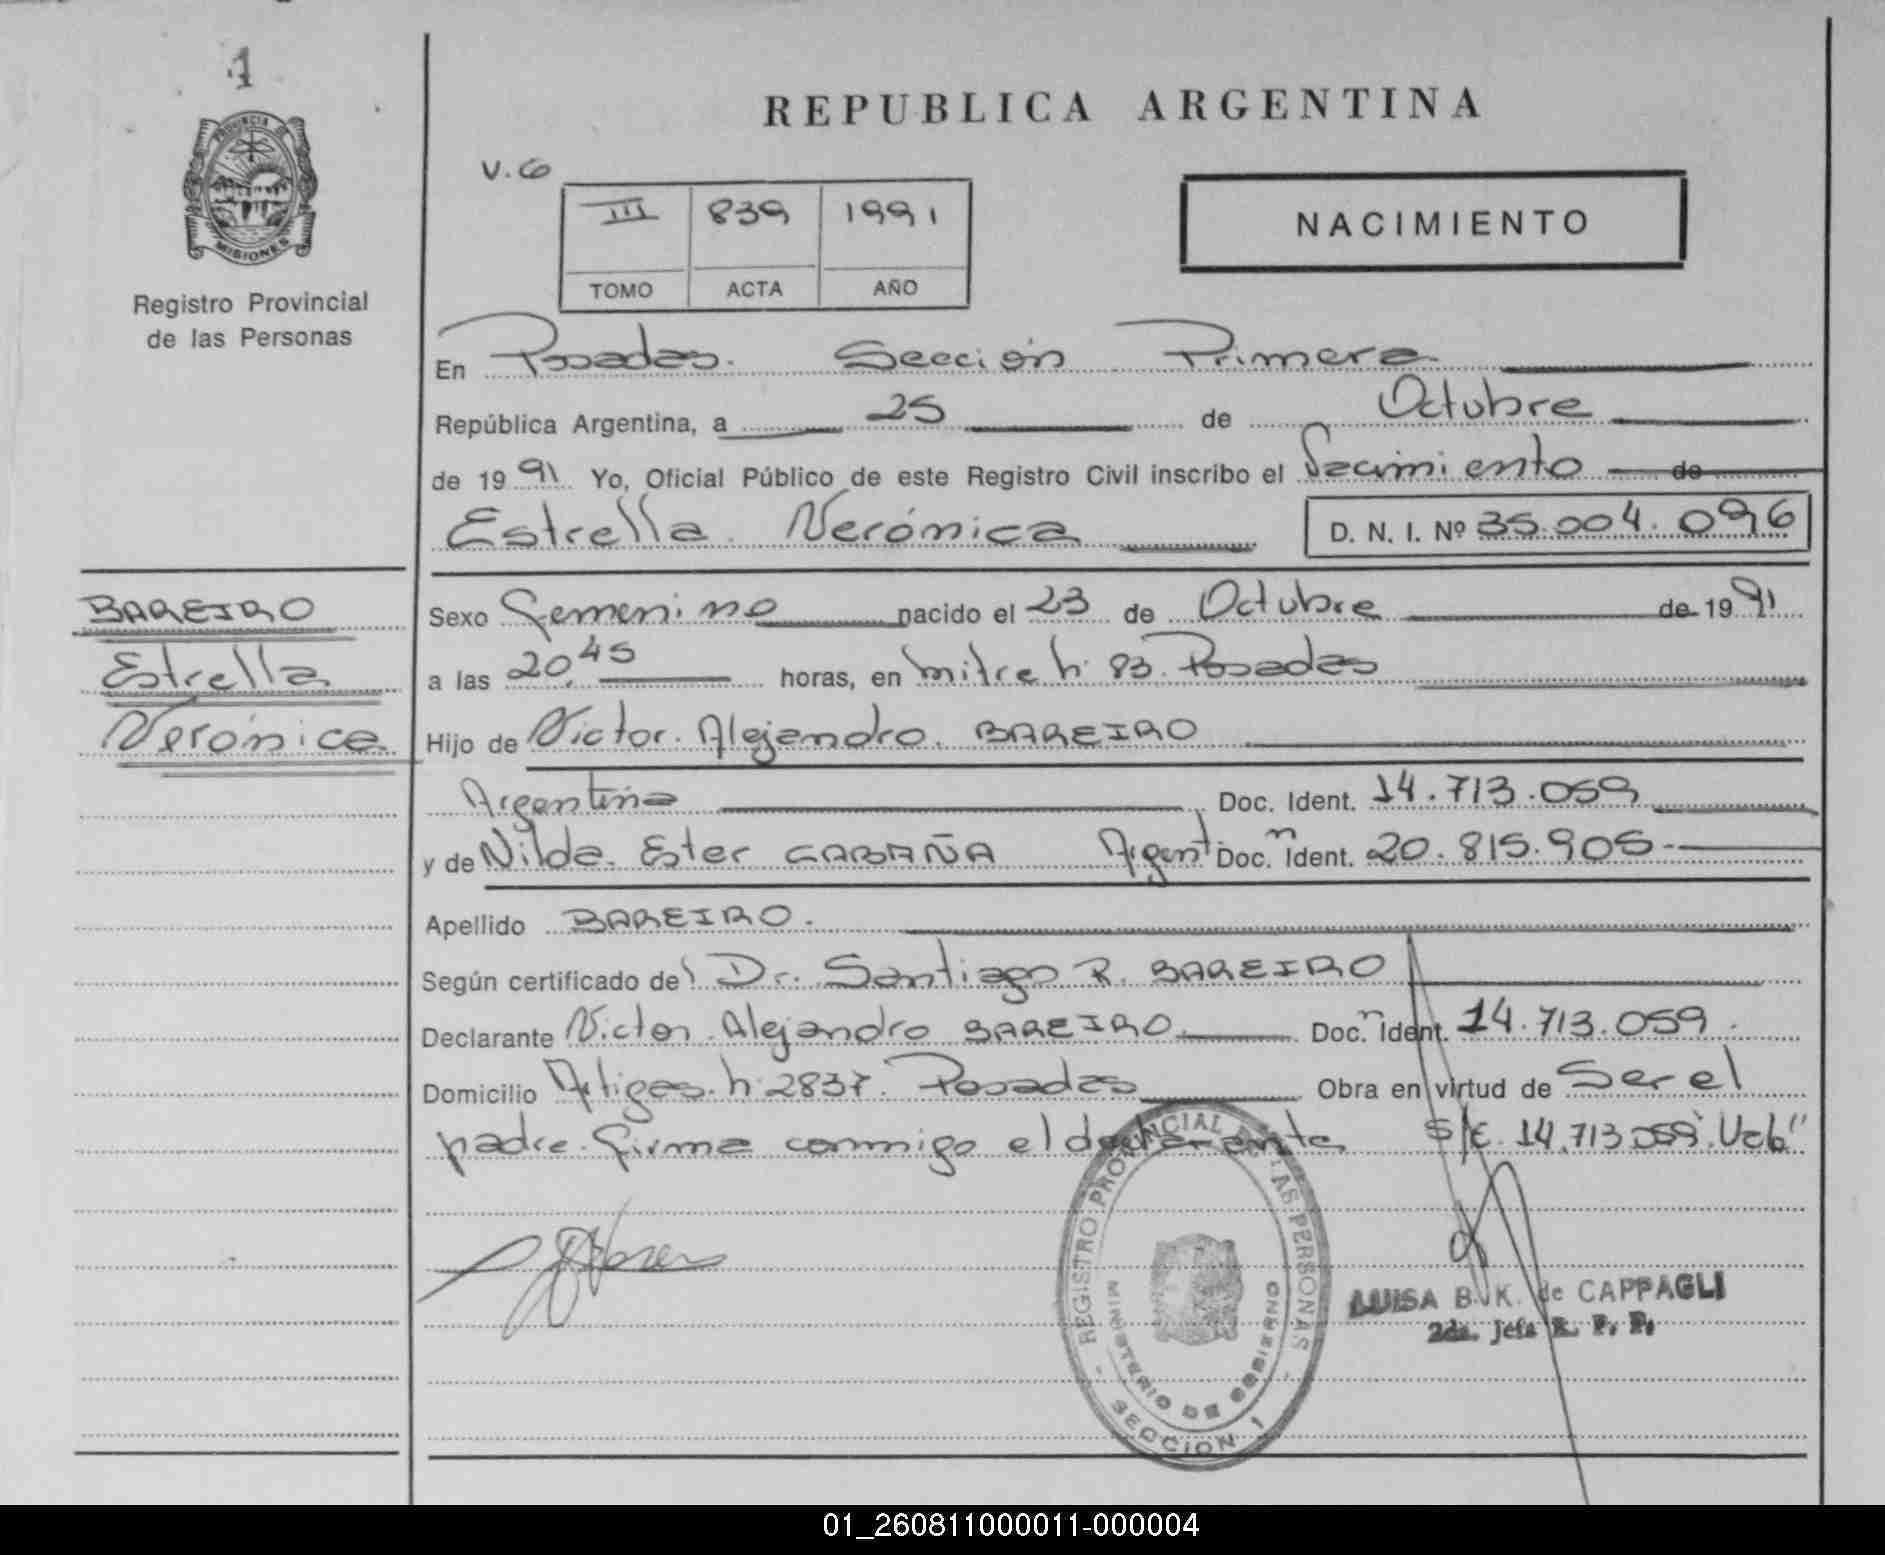 1
PROVINCIA DE
MISIONES
Registro Provincial
de las Personas
REPUBLICA ARGENTINA
V. G
III 839 1991
TOMO ACTA AÑO
NACIMIENTO
En Posadas. Sección Primera
República Argentina, a 25 de Octubre
de 1991 Yo, Oficial Público de este Registro Civil inscribo el Nacimiento de
Estrella Verónica D. N. I. Nº 35.004.096
BAREIRO
Estrella
Verónica
Sexo Femenino nacido el 23 de Octubre de 1991
a las 20,45 horas, en mitre h: 83. Posadas
Hijo de Victor. Alejandro. BAREIRO
Argentina Doc. Ident. 14.713.059
y de Nilda. Ester CABAÑA Argent Doc. n Ident. 20.815.905
Apellido BAREIRO.
Según certificado del Dr. Santiago R. BAREIRO
Declarante Victor Alejandro BAREIRO Doc. n Ident. 14.713.059.
Domicilio Artigas. h: 2837. Posadas Obra en virtud de Ser el
padre. firma conmigo el declarante S/E. 14.713.059".Vale"
REGISTRO PROVINCIAL DE LAS PERSONAS
MINISTERIO DE GOBIERNO
SECCION 1
LUISA B. K. de CAPPAGLI
2da. Jefa R. P. P.
01_260811000011-000004